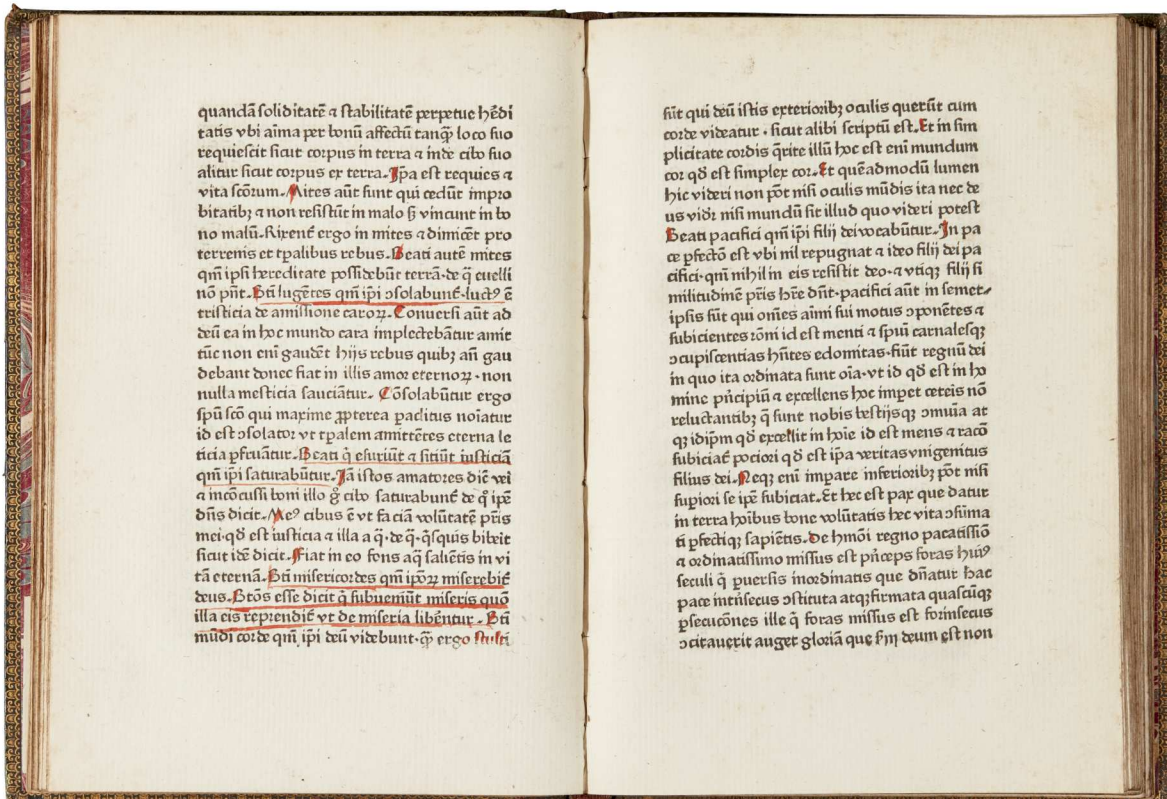 quandā soliditatē ⁊ stabilitatē perpetue hēdi
tatis vbi aīma per bonū affectū tanq̄ȝ loco suo
requiescit sicut corpus in terra ⁊ inde cibo suo
alitur sicut corpus ex terra. Ipa est requies ⁊
vita scōrum. Mites aūt sunt qui cedūt impro
bitatibȝ ⁊ non resistūt in malo sȝ vincunt in bo
no malū. Rixent̄ ergo in mites ⁊ dimicēt pro
terrenis et tp̄alibus rebus. Beati autē mites
qm̄ ipsi hereditate possidebūt terrā. de q̄ euelli
nō pn̄t. Bt̄i lugētes qm̄ ip̄i ↄsolabunt̄. luctꝰ ē
tristicia de amissione caroꝝ. Conuersi aūt ad
deū ea in hoc mundo cara implectebātur amit
tūc non enī gaudēt hijs rebus quibȝ añ gau
debant donec fiat in illis amor eternoꝝ. non
nulla mesticia sauciātur. Cōsolabūtur ergo
spū scō qui maxime ꝓpterea paclitus noīatur
id est ↄsolator vt tp̄alem amittētes eterna le
ticia pfruātur. Beati q̄ esuriūt ⁊ sitiūt iusticiā
qm̄ ip̄i saturabūtur. Jā istos amatores diē vei
⁊ incōcussi boni illo g̊ cibo saturabunt̄ de q̊ ipē
dn̄s dicit. Meꝰ cibus ē vt faciā volūtatē pr̄is
mei. qd̄ est iusticia ⁊ illa aq̄. de q̄. q̄squis bibeit
sicut idē dicit. Fiat in eo fons aq̄ saliētis in vi
tā eternā. Bt̄i misericordes qm̄ ip̄oꝝ miserebit̄
deus. Bt̄os esse dicit q̄ subueniūt miseris quō
illa eis reprendit̄ vt de miseria libēntur. Bt̄i
mūdi corde qm̄ ip̄i deū videbunt. q̄ȝ ergo stulti
sūt qui deū istis exterioribȝ oculis querūt cum
corde videatur. sicut alibi scriptū est. Et in sim
plicitate cordis q̄rite illū hoc est enī mundum
cor qd̄ est simplex cor. Et quēadmodū lumen
hic videri non pōt nisi oculis mūdis ita nec de
us vidr̄ nisi mundū sit illud quo videri potest
Beati pacifici qm̄ ip̄i filij dei vocabūtur. In pa
ce pfectō est vbi nil repugnat ⁊ ideo filij dei pa
cifici. qm̄ nihil in eis resistit deo. ⁊ vtiqȝ filij si
militudinē pr̄is hr̄e dn̄t. pacifici aūt in semet⸗
ipsis sūt qui om̄es aīmi sui motus ↄponētes ⁊
subicientes rōni id est menti ⁊ spiū carnalesqȝ
ↄcupiscentias hn̄tes edomitas. fiūt regnū dei
in quo ita ordinata sunt oīa. vt id qd̄ est in ho
mine pn̄cipiū ⁊ excellens hoc impet ceteis nō
reluctantibȝ q̄ sunt nobis bestijsqȝ ↄmūia at
qȝ idip̄m qd̄ excellit in hoīe id est mens ⁊ racō
subiciat̄ pociori qd̄ est ip̄a veritas vnigenitus
filius dei. Neqȝ enī impare inferioribȝ pōt nisi
supiori se ip̄e subiciat. Et hec est pax que datur
in terra hoībus bone volūtatis hec vita ↄsūma
ti pfectiqȝ sapiētis. De hmōi regno pacatissīo
⁊ ordinatissimo missus est pn̄ceps foras huiꝰ
seculi q̄ puersis inordinatis que dn̄atur hac
pace intn̄secus ↄstituta atqȝ firmata quascūqȝ
psecucōnes ille q̄ foras missus est forinsecus
ↄcitauerit auget gloriā que scd̄m deum est non